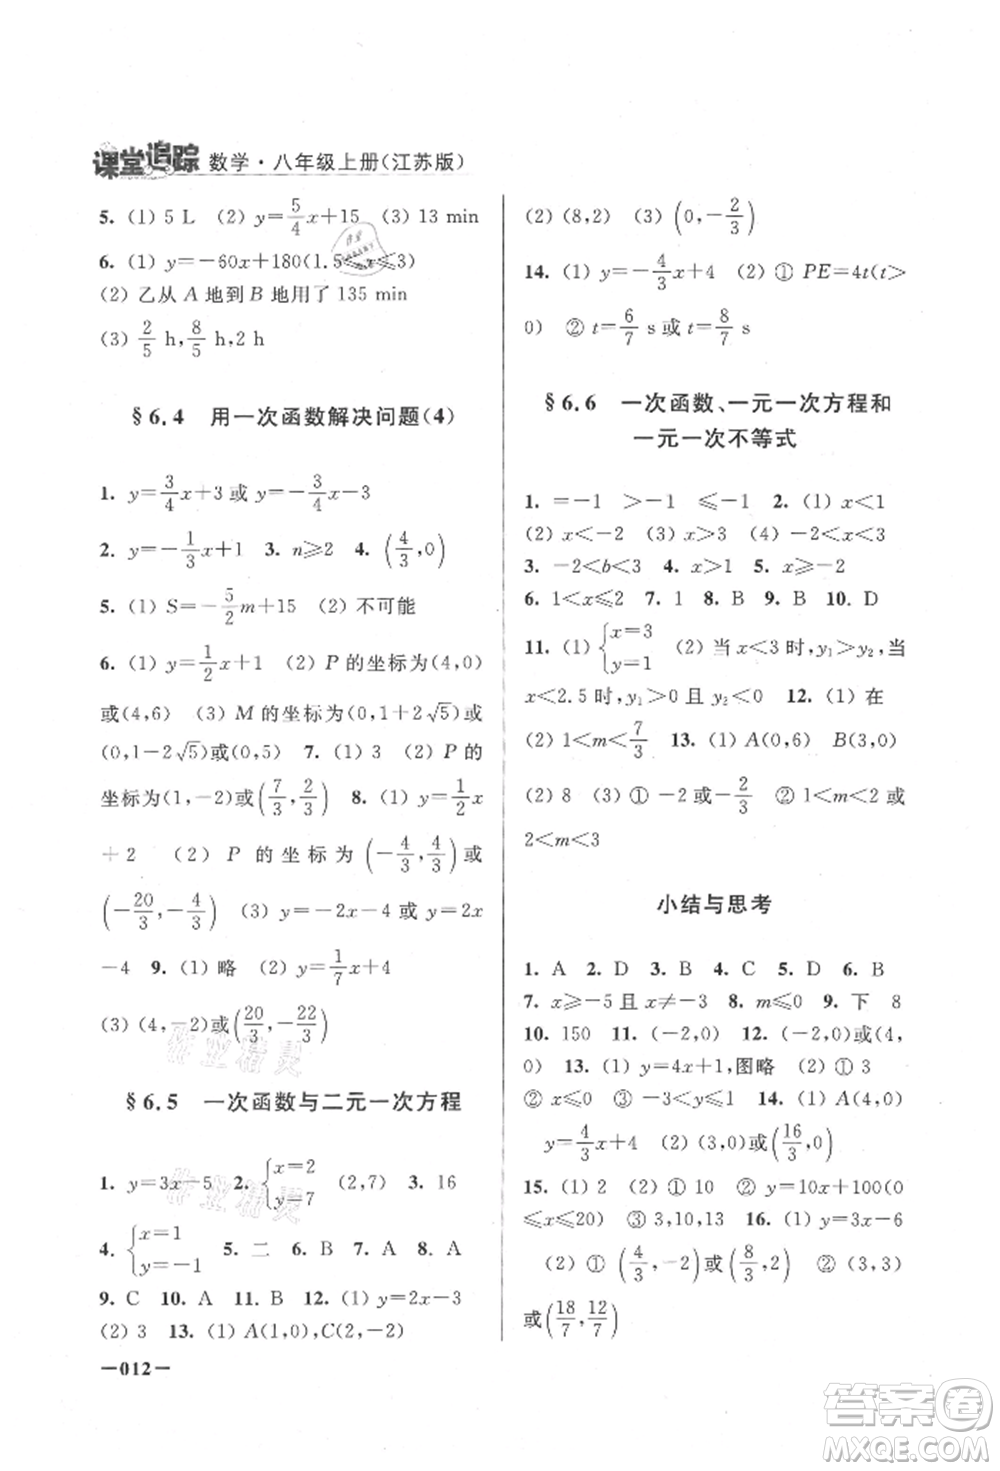 课堂追踪 数学·八年级上册(江苏版)
5. (1) 5 L (2) y=5/4x+15 (3) 13 min
6. (1) y=-60x+180(1.5≤x≤3)
(2) 乙从 A 地到 B 地用了 135 min
(3) 2/5 h,8/5 h,2 h
§6.4 用一次函数解决问题(4)
1. y=3/4x+3 或 y=-3/4x-3
2. y=-1/3x+1 3. n≥2 4. (4/3,0)
5. (1) S=-5/2m+15 (2) 不可能
6. (1) y=1/2x+1 (2) P 的坐标为(4,0)
或(4,6) (3) M 的坐标为(0,1+2√5)或
(0,1-2√5)或(0,5) 7. (1) 3 (2) P 的
坐标为(1,-2)或(7/3,7/3) 8. (1) y=1/2x
+2 (2) P 的坐标为(-4/3,4/3)或
(-20/3,-4/3) (3) y=-2x-4 或 y=-2x
-4 9. (1) 略 (2) y=1/7x+4
(3) (4,-2)或(20/3,-22/3)
§6.5 一次函数与二元一次方程
1. y=3x-5 2. {x=2 y=7 (2,7) 3. 16
4. {x=1 y=-1 5. 二 6. B 7. A 8. A
9. C 10. A 11. B 12. (1) y=2x-3
(2) 3 13. (1) A(1,0),C(2,-2)
—012—
(2) (8,2) (3) (0,-2/3)
14. (1) y=-4/3x+4 (2) ① PE=4t(t>
0) ② t=6/7 s或t=8/7 s
§6.6 一次函数、一元一次方程和
一元一次不等式
1. =-1 >-1 ≤-1 2. (1) x<1
(2) x<-2 (3) x>3 (4) -2≤x<3
3. -2<b<3 4. x>1 5. x≥-2
6. 1<x≤2 7. 1 8. B 9. B 10. D
11. (1) {x=3 y=1 (2) 当 x<3 时,y₁>y₂,当
x<2.5 时,y₁>0 且 y₂<0 12. (1) 在
(2) 1<m<7/3 13. (1) A(0,6) B(3,0)
(2) 8 (3) ① -2 或-2/3 ② 1<m<2 或
2<m<3
小结与思考
1. A 2. D 3. B 4. C 5. D 6. B
7. x≥-5 且 x≠-3 8. m≤0 9. 下 8
10. 150 11. (-2,0) 12. (-2,0)或(4,
0) 13. (1) y=x+4,图略 (2) ① 3
② x≤0 ③ -3<x<1 14. (1) A(4,0)
y=4/3x+4 (2) (3,0)或(16/3,0)
15. (1) 2 (2) ① 10 ② y=10x+100(0
≤x≤20) ③ 3,10,13 16. (1) y=3x-6
(2) ① (4/3,-2)或(8/3,2) ② (3,3)
或(18/7,12/7)
作业精灵
作业精灵
答案圈
MXQE.COM